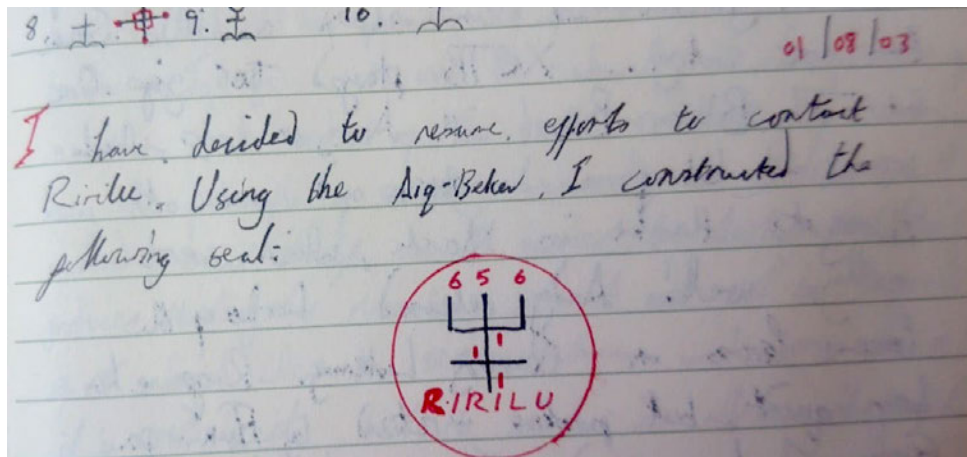 8. 9. 10.
01/08/03
I have decided to resume efforts to contact
Ririlu. Using the Aiq-Beker, I constructed the
following seal:
6 5 6
1
1
1
RIRILU